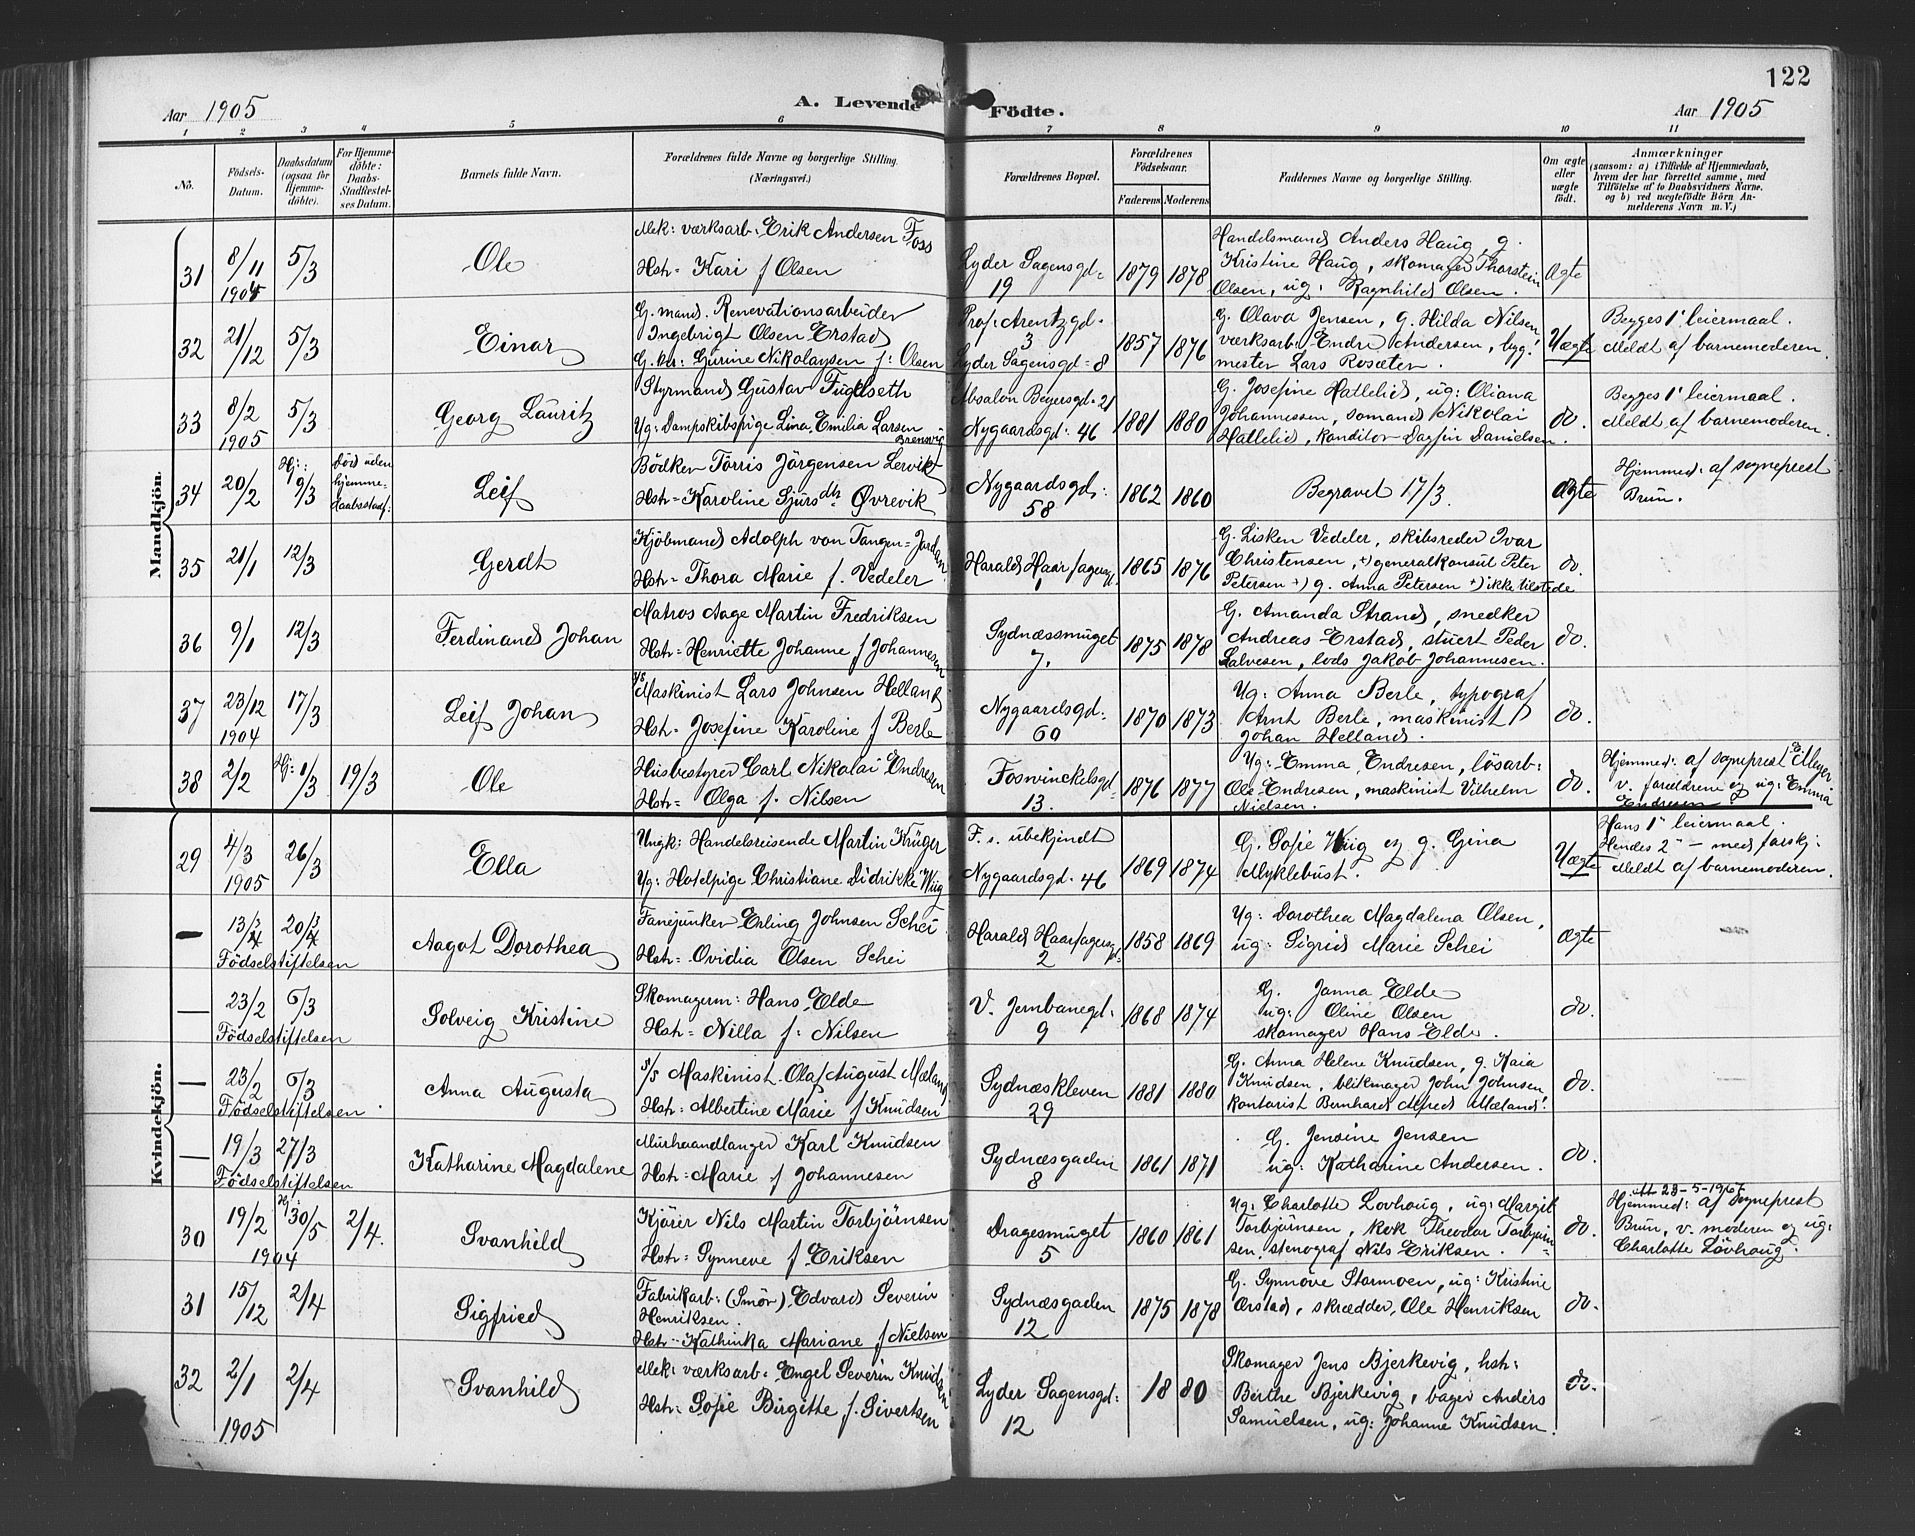 122
Aar 1905
A. Levende Födte.
Aar 1905
1 2 3 4 5 6 7 8 9 10 11
No.
Födsels-Datum.
Daabsdatum (ogsaa for Hjemme-döbte).
For Hjemme-döbte: Daabs-Stadfæstel-ses Datum.
Barnets fulde Navn.
Forældrenes fulde Navne og borgerlige Stilling. (Næringsvei.)
Forældrenes Bopæl.
Forældrenes Födselsaar.
Faderens Moderens
Faddernes Navne og borgerlige Stilling.
Om ægte eller uægte födt.
Anmærkninger
(saasom: a) i Tilfælde af Hjemmedaab, hvem der har forrettet samme, med Tilföielse af to Daabsvidners Navne. og b) ved uægtefödte Börn An-melderens Navn m. V.)
Mandkjön.
31 8/11 1904 5/3 Ole
Mek: værksarb: Erik Andersen Foss
Hstr: Kari f Olsen
Lyder Sagensgd: 19
1879 1878
Handelsmand Anders Haug, g.
Kristine Haug, skomager Thorstein
Olsen, ug: Ragnhild Olsen.
Ægte
32 21/12 5/3 Einar
G. mand. Renovationsarbeider
Ingebrigt Olsen Erstad
G. kv: Gurine Nikolaysen f: Olsen
Prof. Arentzgd. 3
Lyder Sagensgd: 8
1857 1876
G. Olava Jensen, g. Hilda Nilsen
værksarb: Endre Andersen, byg.
mester Lars Rosæter.
Uægte
Begges 1' leiermaal.
Meldt af barnemoderen.
33 8/2 1905 5/3 Georg Lauritz
Styrmand Gustav Fuglseth
Ug: Dampskibspige Lina Emilia Larsen Brensvig
Absalon Beyersgd: 21
Nygaardsgd: 46
1881 1880
G. Josefine Hatlelid, ug: Oliana
Johannessen, sømand Nikolai
Hatlelid, konditor Dagfin Danielsen.
do.
Begges 1' leiermaal.
Meldt af barnemoderen.
34 20/2 Hj: 9/3 Död uden hjemme-daabsstadf: Leif
Bödker Törris Jörgensen Lervik
Hstr: Karoline Sjursdtr Øvrevik
Nygaardsgd: 58
1862 1860
Begravet 17/3.
Ægte
Hjemmed: af sogneprest
Brun.
35 21/1 12/3 Gerdt
Kjöbmand Adolph von Tangen-Jordan
Hstr: Thora Marie f. Vedeler
Harald Haarfagersg. 1
1865 1876
G. Lisken Vedeler, skibsreder Ivar
Christensen, +) generalkonsul Peter
Petersen +) g. Anna Petersen +) ikke tilstede
do.
36 9/1 12/3 Ferdinand Johan
Matros Aage Martin Fredriksen
Hstr: Henriette Johanne f Johannesen
Sydnæssmuget 7.
1875 1878
G. Amanda Strand, snedker
Andreas Erstad, stuert Peder
Salvesen, lods Jakob Johannesen.
do.
37 23/12 1904 17/3 Leif Johan
d/s Maskinist Lars Johnsen Helland
Hstr: Josefine Karoline f Berle
Nygaardsgd: 60
1870 1873
Ug: Anna Berle, typograf
Arnt Berle, maskinist
Johan Helland.
do.
38 2/2 Hj: 1/3 19/3 Ole
Husbestyrer Carl Nikolai Endresen
Hstr: Olga f. Nilsen
Foswinckelsgd. 13.
1876 1877
Ug: Emma Endresen, lösarb:
Ole Endresen, maskinist Vilhelm
Nielsen.
do.
Hjemmed: af sogneprest Meyer
v. forældrene og ug: Emma
Endresen.
Kvindekjön.
29 4/3 1905 26/3 Ella
Ungk: Handelsreisende Martin Krüger
Ug: Hotelpige Christiane Didrikke Wiig
F. s. ubekjendt
Nygaardsgd: 46
1869 1874
G. Sofie Wiig og g. Gina
Myklebust.
Uægte
Hans 1' leiermaal.
Hendes 2' – med forskj:
Meldt af barnemoderen.
— 13/3 20/3 Födselstiftelsen Aagot Dorothea
Fanejunker Erling Johnsen Schei
Hstr: Ovidia Olsen Schei
Harald Haarfagersgd: 2
1858 1869
Ug: Dorothea Magdalena Olsen,
ug: Sigrid Marie Schei
Ægte
— 23/2 6/3 Födselstiftelsen Solveig Kristine
Skomagerm: Hans Elde
Hstr: Nilla f: Nilsen
V. Jernbanegd: 9
1868 1874
G. Janna Elde
ug: Oline Olsen
skomager Hans Elde.
do.
— 23/2 6/3 Födselstiftelsen Anna Augusta
d/s Maskinist Olaf August Mæland
Hstr: Albertine Marie f Knudsen
Sydnæskleven 29
1881 1880
G. Anna Helene Knudsen, g. Kaia
Knudsen, blikmager John Johnsen
kontorist Bernhard Alfred Mæland.
do.
— 19/3 27/3 Födselstiftelsen Katharine Magdalene
Murhaandlanger Karl Knudsen
Hstr: Marie f Johannesen
Sydnæsgaden 8
1861 1871
G. Jensine Jensen
ug: Katharine Andersen.
do.
30 19/2 1904 Hj: 30/5 2/4. Svanhild
Kjörer Nils Martin Torbjörnsen
Hstr: Synneve f Eriksen
Dragesmuget 5
1860 1861
Ug: Charlotte Lovhoug, ug: Margit
Torbjörnsen, kok Theodor Torbjörn-
sen, stenograf Nils Eriksen.
do.
Att 23-5-1967
Hjemmed: af sogneprest
Brun, v. moderen og ug:
Charlotte Lövhoug.
31 15/12 2/4 Sigfried
Fabrikarb: (Smör) Edvard Severin
Henriksen.
Hstr: Kathinka Mariane f Nielsen
Sydnæsgaden 12
1875 1878
G. Synnöve Stormoen, ug: Kristine
Ærstad, skrædder Ole Henriksen
do.
32 2/1 1905 2/4 Svanhild
Mek: værksarb: Engel Severin Knudsen
Hstr: Sofie Birgitte f. Sivertsen
Lyder Sagensgd: 12
1880
Skomager Jens Bjerkevig, hstr:
Berthe Bjerkevig, bager Anders
Samuelsen, ug: Johanne Knudsen.
do.